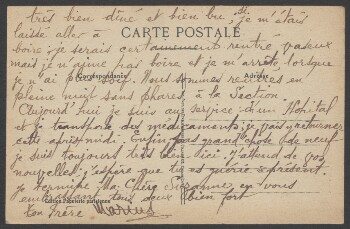 très bien diné et bien bu, si je m'étais
laissé aller à
CARTE POSTALE
boire, je serais certainement rentré vaseux
mais je n'aime pas boire et je m'arrête lorsque
je n'ai plus soif. Nous sommes rentrés en
Correspondance
Adresse
pleine nuit sans phares à la Section.
Aujourd'hui je suis au service d'un Hopital
et je transporte des médicaments; je vais y retourner
cette après midi. Enfin pas grand chose de neuf
je suis toujours très bien ici. J'attend de vos
nouvelles; j'espère que tu es guérie à présent.
Je termine Ma Chère Suzanne en vous
embrassant tous deux bien fort
Ton frère Marius